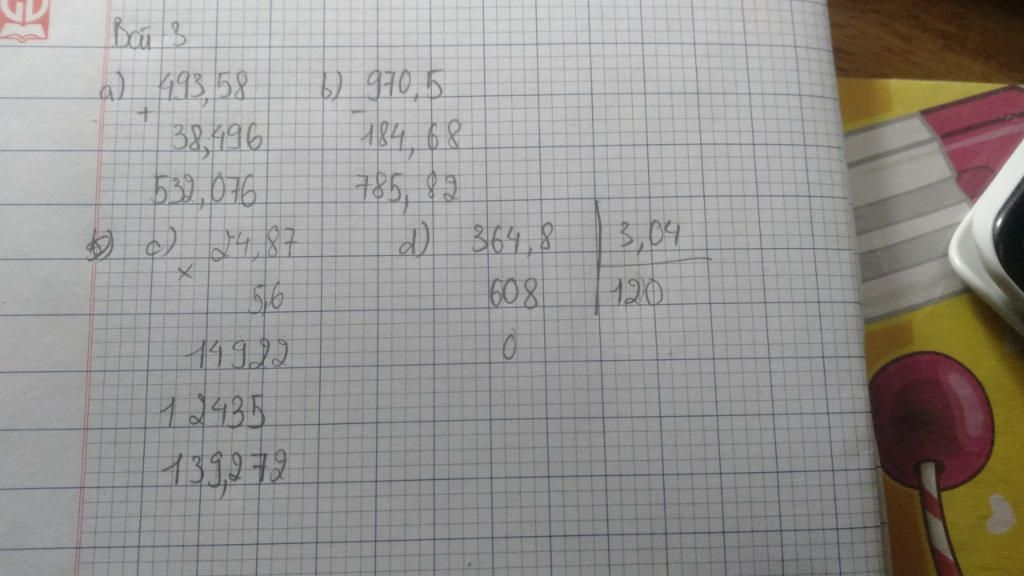 Bài 3
a) 493,58 b) 970,5
+ -
38,496 184,68
532,076 785,82
c) 24,87 d) 364,8 3,04
x
5,6 608 120
14922 0
12435
139,272